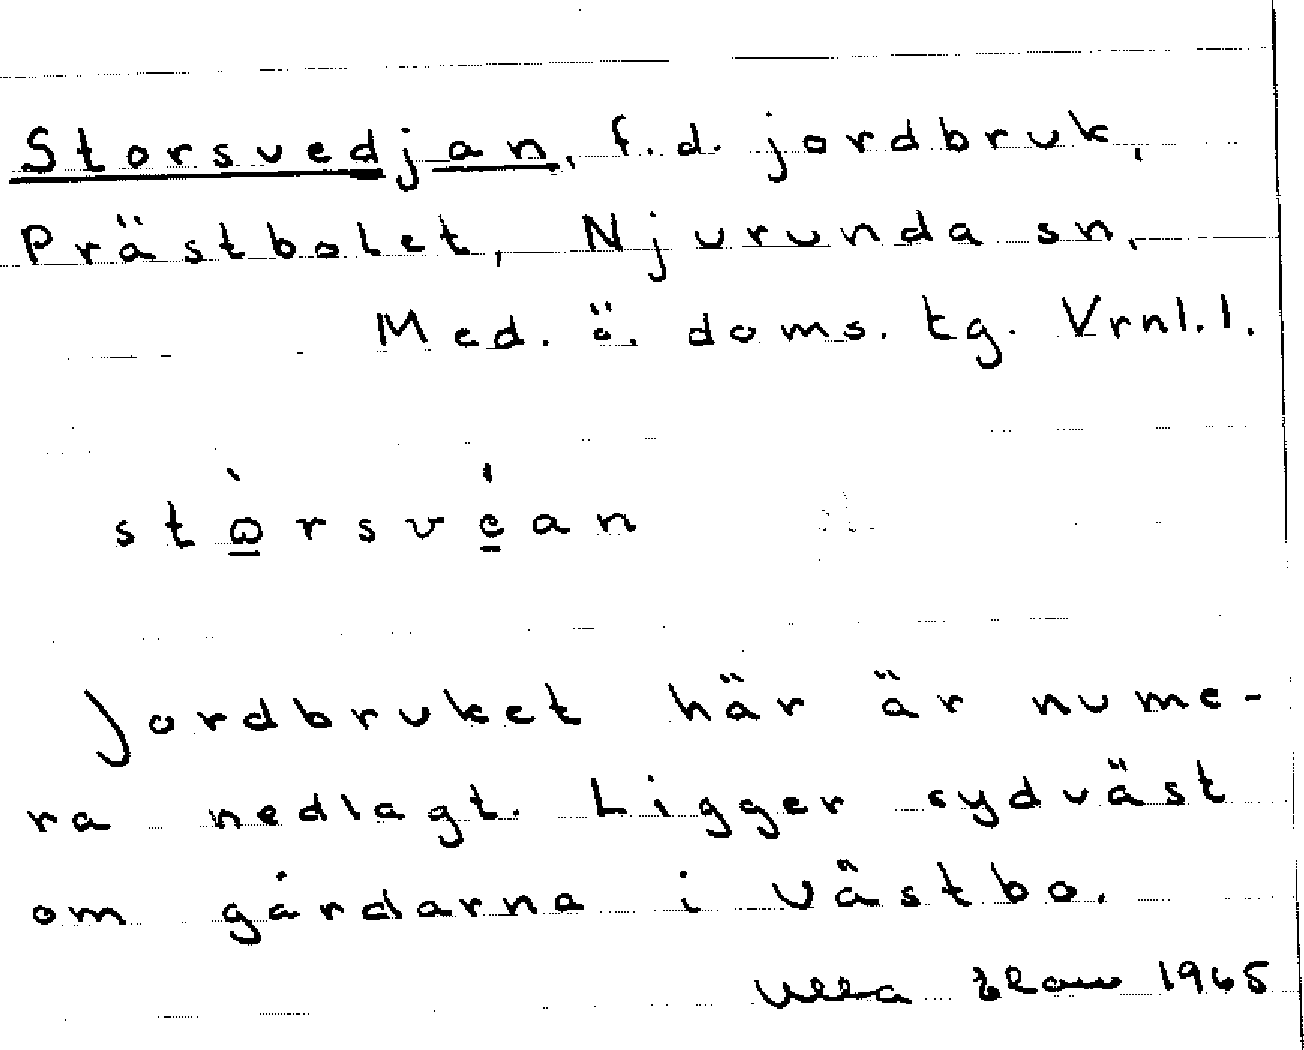 Storsvedjan, f.d. jordbruk,
Prästbolet, Njurunda sn,
Med. ö. doms. tg. Vrnl.l.
stɷ̀rsvéan
Jordbruket här är nume-
ra nedlagt. Ligger sydväst
om gårdarna i Västbo.
Ulla 1965